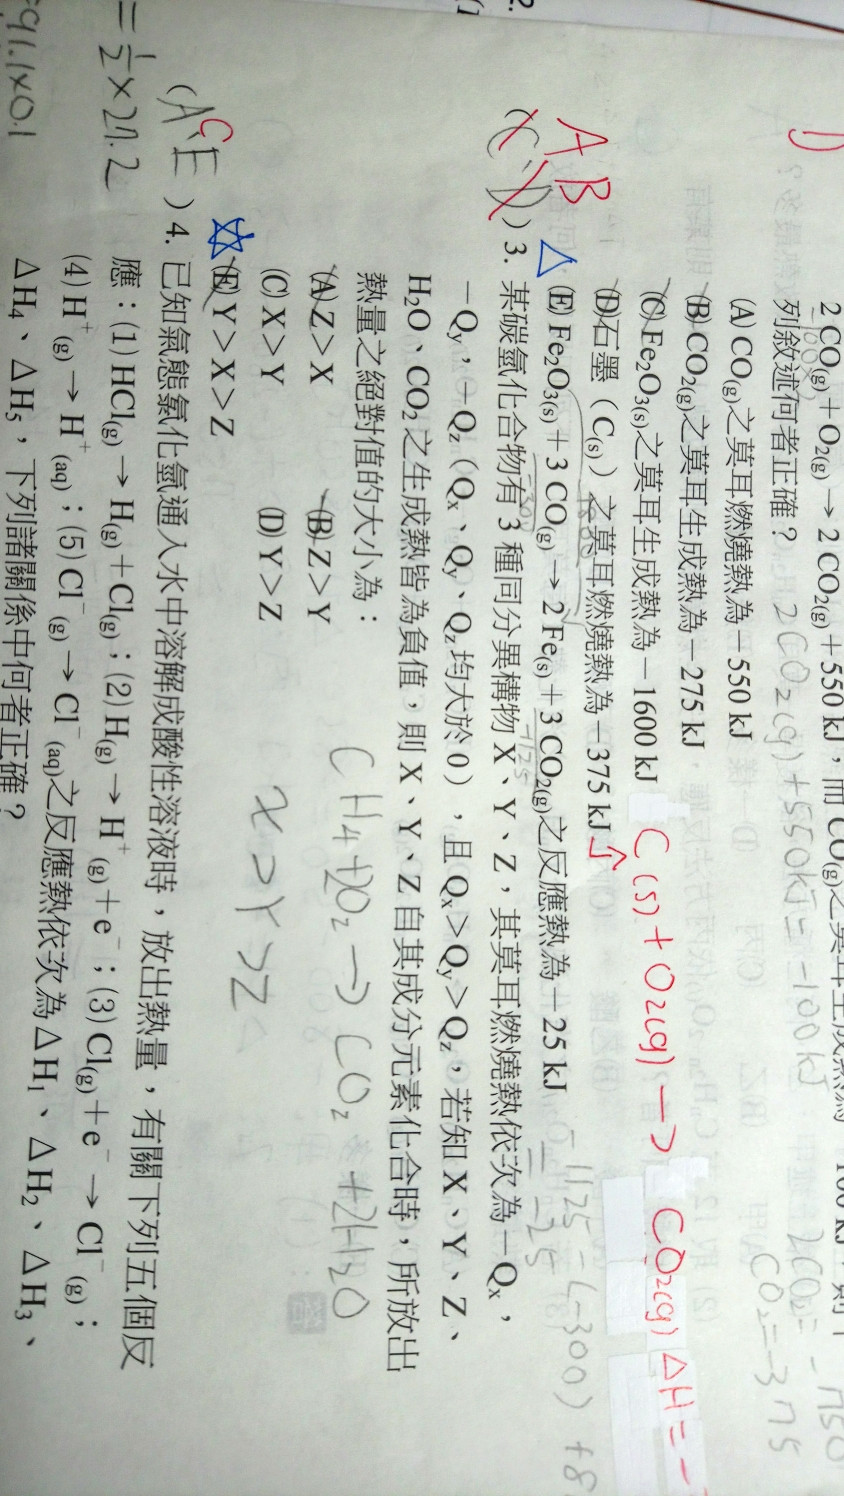 2 CO(g)+O2(g)→2 CO2(g)+550 kJ，而 CO(g)之莫耳生成熱為
列敘述何者正確？ 2CO2(g)+550kJ = -100kJ
(A) CO(g)之莫耳燃燒熱為－550 kJ
CO2=-375
(B) CO2(g)之莫耳生成熱為－275 kJ
(C) Fe2O3(s)之莫耳生成熱為－1600 kJ
C(s)+O2(g)→CO2(g) ΔH=-
(D)石墨（C(s)）之莫耳燃燒熱為－375 kJ
(E) Fe2O3(s)+3 CO(g)→2 Fe(s)+3 CO2(g)之反應熱為－25 kJ
-1125-(-300)+8
=-25
AB
(C、D) 3. 某碳氫化合物有 3 種同分異構物 X、Y、Z，其莫耳燃燒熱依次為－Qx，
－Qy，－Qz（Qx、Qy、Qz均大於 0），且 Qx＞Qy＞Qz，若知 X、Y、Z、
H2O、CO2 之生成熱皆為負值，則 X、Y、Z 自其成分元素化合時，所放出
熱量之絕對值的大小為：
CH4+2O2→CO2+2H2O
(A) Z＞X (B) Z＞Y
(C) X＞Y (D) Y＞Z
X>Y>Z
(E) Y＞X＞Z
C
(A、E) 4. 已知氣態氯化氫通入水中溶解成酸性溶液時，放出熱量，有關下列五個反
應：(1) HCl(g)→H(g)+Cl(g)；(2) H(g)→H+(g)+e−；(3) Cl(g)+e−→Cl−(g)；
(4) H+(g)→H+(aq)；(5) Cl−(g)→Cl−(aq)之反應熱依次為ΔH1、ΔH2、ΔH3、
ΔH4、ΔH5，下列諸關係中何者正確？
=1/2×27.2
=91.1×0.1